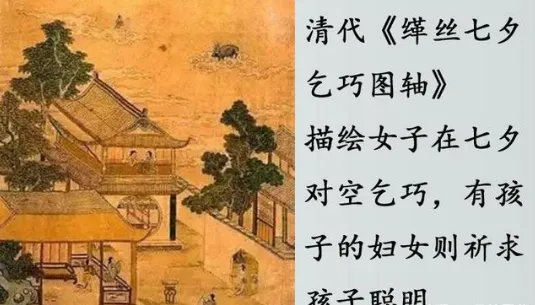 清代《缂丝七夕
乞巧图轴》
描绘女子在七夕
对空乞巧，有孩
子的妇女则祈求
孩子聪明